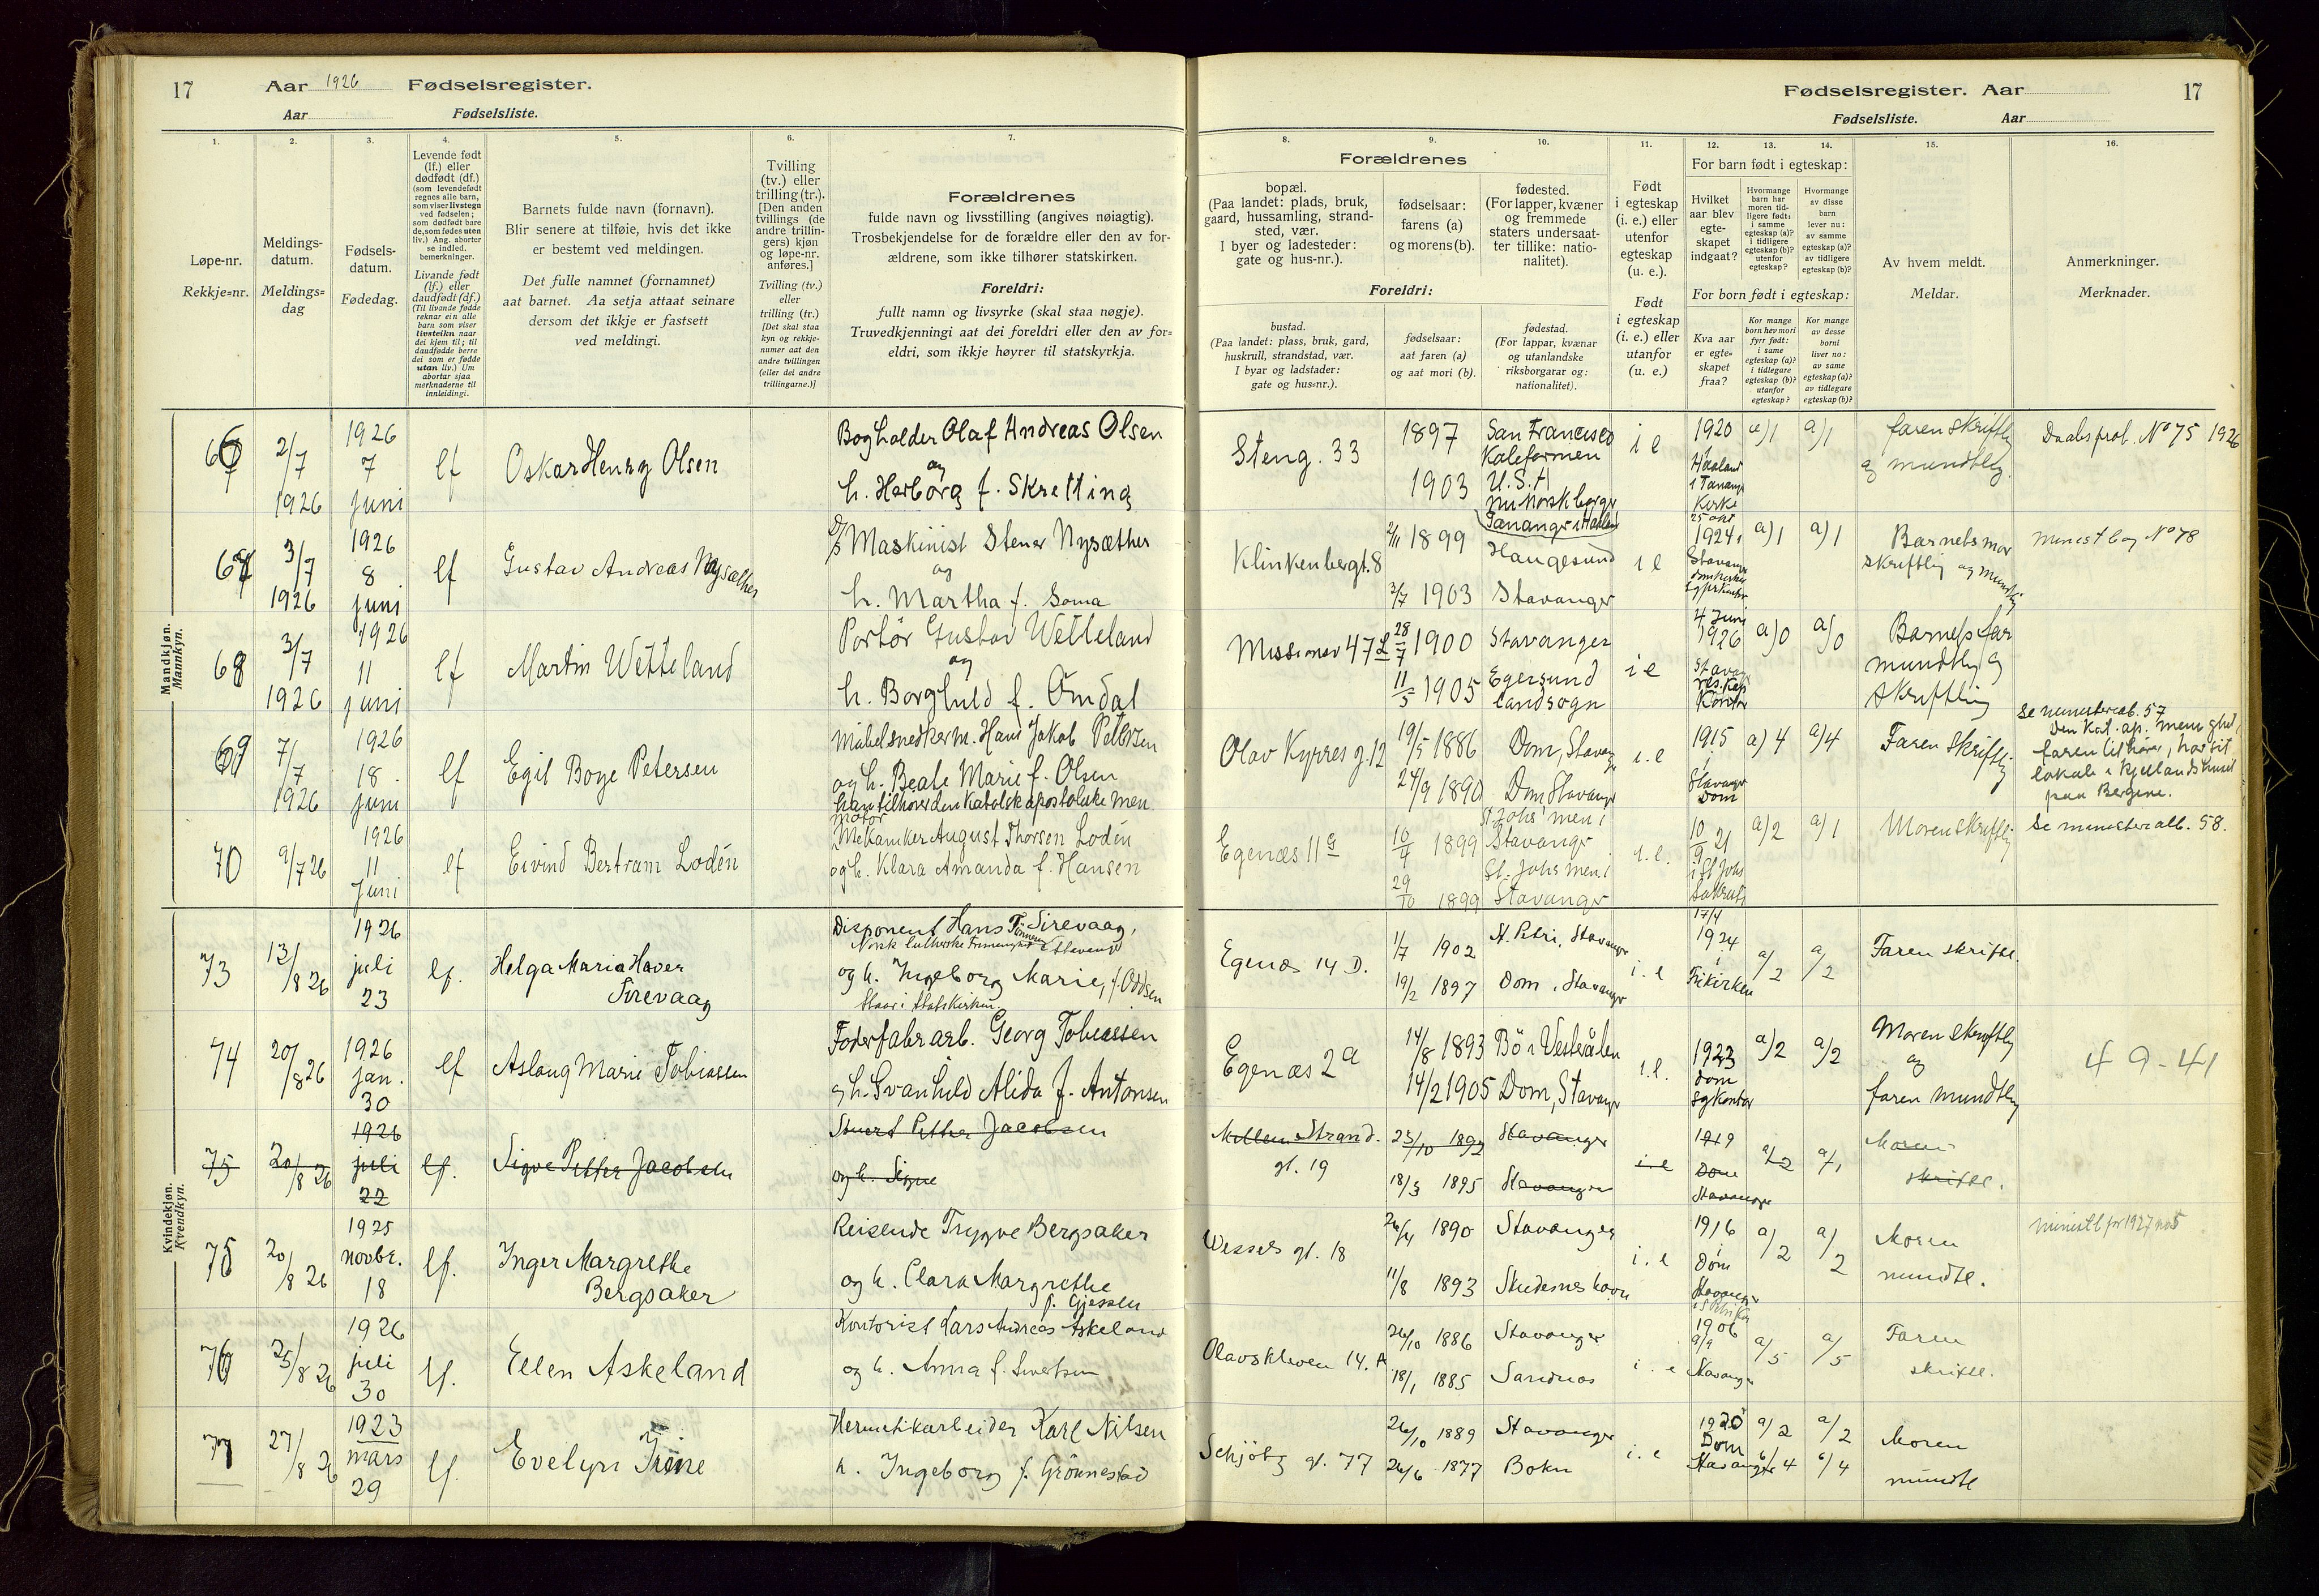 17
Aar 1926 Fødselsregister.
Aar Fødselsliste.
Fødselsregister. Aar
17
Fødselsliste. Aar
1. 2. 3. 4. 5. 6. 7.
Løpe-nr.
Rekkje=nr.
Meldings-
datum.
Meldings=
dag
Fødsels-
datum.
Fødedag.
Levende født
(lf.) eller
dødfødt (df.)
(som levendefødt
regnes alle barn,
som viser livstegn
ved fødselen;
som dødfødt bare
de, som fødes uten
liv.) Ang. aborter
se indled.
bemerkninger.
Livande født
(lf.) eller
daudfødt (df.)
(Til livande fødde
reknar ein alle
barn som viser
livsteikn naar
dei kjem til; til
daudfødde berre
dei som er fødde
utan liv.) Um
abortar sjaa
merknaderne til
innleidingi.
Barnets fulde navn (fornavn).
Blir senere at tilføie, hvis det ikke
er bestemt ved meldingen.
Det fulle namnet (fornamnet)
aat barnet. Aa setja attaat seinare
dersom det ikkje er fastsett
ved meldingi.
Tvilling
(tv.) eller
trilling (tr.).
[Den anden
tvillings (de
andre trillin-
gers) kjøn
og løpe-nr.
anføres.]
Tvilling (tv.)
eller
trilling (tr.)
[Det skal staa
kyn og rekkje-
numer aat den
andre tvillingen
(eller dei andre
trillingarne.)]
Forældrenes
fulde navn og livsstilling (angives nøiagtig).
Trosbekjendelse for de forældre eller den av for-
ældrene, som ikke tilhører statskirken.
Foreldri:
fullt namn og livsyrke (skal staa nøgje).
Truvedkjenningi aat dei foreldri eller den av for=
eldri, som ikkje høyrer til statskyrkja.
8. 9. 10. 11. 12. 13. 14. 15. 16.
Forældrenes
bopæl.
(Paa landet: plads, bruk,
gaard, hussamling, strand-
sted, vær.
I byer og ladesteder:
gate og hus-nr.).
fødselsaar:
farens (a)
og morens (b).
fødested.
(For lapper, kvæner
og fremmede
staters undersaat-
ter tillike: natio-
nalitet).
Foreldri:
bustad.
(Paa landet: plass, bruk, gard,
huskrull, strandstad, vær.
I byar og ladstader:
gate og hus=nr.).
fødselsaar:
aat faren (a)
og aat mori (b).
fødestad.
(For lappar, kvænar
og utanlandske
riksborgarar og:
nationalitet).
Født
i egteskap
(i. e.) eller
utenfor
egteskap
(u. e.).
Født
i egteskap
(i. e.) eller
utanfor
(u. e.)
For barn født i egteskap:
Hvilket
aar blev
egte-
skapet
indgaat?
Hvormange
barn har
moren tid-
ligere født:
i samme
egteskap (a)?
i tidligere
egteskap (b)?
utenfor
egteskap?
Hvormange
av disse
barn
lever nu:
av samme
egteskap (a)?
av tidligere
egteskap (b)?
For born født i egteskap:
Kva aar
er egte=
skapet
fraa?
Kor mange
born hev mori
fyrr født:
i same
egteskap (a)?
i tidlegare
egteskap (b)?
utanfor
egteskap?
Kor mange
av desse
borni
liver no:
av same
egteskap (a)?
av tidlegare
egteskap (b)?
Av hvem meldt.
Meldar.
Anmerkninger.
Merknader.
Mandkjøn.
Mannkyn.
66 2/7 1926 1926 7 juni lf Oskar Henry Olsen
Bogholder Olaf Andreas Olsen
og
h. Herborg f. Skretting
Steng. 33 1897 San Francisco
Kaleformen
U.S.A
nu norsk borger
1903 Tananger i Haaland
i e 1920 i Haaland i Tanang Kirke a)1 a)1 faren skriftlig
og mundtlig.
Daabsprot. No 75 1926
67 3/7 1926 1926 8 juni lf Gustav Andreas Nysæther
D/S Maskinist Stener Nysæther
og
h. Martha f. Soma
Klinkenbergt. 8 2/11 1899 Haugesund
3/7 1903 Stavanger
i e 25 okt 1924 Stavanger a)1 a)1 Barnets mor
skriftlig og mundtlig
minist bog No 78
68 3/7 1926 1926 11 juni lf Martin Wetteland
Portör Gustav Wetteland
og
h. Borghild f. Omdal
Missionsv 47 28/7 1900 Stavanger
11/5 1905 Egersund
landsogn
i e 4 Juni 1926 a)0 a)0 Barnets far
mundtlig og
skriftlig
69 7/7 1926 1926 18 juni lf Egil Boye Petersen
Möbelsnedkerm. Hans Jakob Petersen
og h. Beate Marie f. Olsen
han tilhører den Katolsk apostoliske men.
Olav Kyrres g. 12 19/5 1886 Dom, Stavanger
24/9 1890 Dom Stavanger
i. e 1915 i Stavanger Dom a) 4 a)4 Faren skriftlig
Se ministerialb. 57
Den Kat. ap. menighet,
faren tilhører, har sit
lokale i Kjellandshuset
paa Bergene.
70 9/7 26 1926 11 Juni lf Eivind Bertram Lodén
motor
Mekaniker August Thorsen Lodén
og h. Klara Amanda f. Hansen
Egenæs 11 10/4 1899 St Johs' men i
Stavanger
29/10 1899 St. Johs men. i
Stavanger
i. e. 10/9 21 i St Johs Sakristi a)2 a)1 Moren skriftlig
Se ministerialb. 58.
Kvindekjøn.
Kvendkyn.
73 13/8 26 1926 juli 23 lf. Helga Maria Haver
Sirevaag
Disponent Hans Tönnes Sirevaag,
Norsk lutherske Frimenighet i Stavanger
og h. Ingeborg Marie, f. Oddsen
Staar i Statskirken
Egenæs 14 D. 1/7 1902 St. Petri, Stavanger
19/2 1897 Dom, Stavanger
i. e 17/4 1924 i Frikirken a/2 a/2 Faren skriftl.
74 20/8 26 1926 jan. 30 lf Aslaug Marie Tobiassen
Foderfabr arb. Georg Tobiassen
og h. Svanhild Alida f. Antonsen
Egenæs 2a 14/8 1893 Bö i Vesterålen
14/2 1905 Dom, Stavanger
i. e. 1923 Dom sg kontor a)2 a/2 Moren skriftlig
og
faren mundtlig
4 9-41
75 20/8 26 1926 juli 22 lf. Sigve Petter Jacobsen
Petter Jacobsen
og h. Signe
Mellem Strand.
gt. 19 23/10 1892 Stavanger
18/3 1895 Stavanger
i. e 1919 Dom Stavanger a/2 a/1 Moren
skriftl.
75 20/8 26 1925 novbr. 18 lf. Inger Margrethe
Bergsaker
Reisende Trygve Bergsaker
og h. Clara Margrethe
f. Gjessen
Wessels gt. 18 26/4 1890 Stavanger
11/8 1893 Skudesneshavn
i. e 1916 i Dom Stavanger a/2 a/2 Moren
mundtl.
ministb for 1927 no 5
76 25/8 26 1926 juli 30 lf. Ellen Askeland
Kontorist Lars Andreas Askeland
og h. Anna f. Sivertsen
Olavskleven 14. A 26/10 1886 Stavanger
18/1 1885 Sandnes
i. e 1906 9/9 Stavanger a/5 a/5 Faren
skriftl.
77 27/8 26 1923 mars 29 lf. Evelyn Irene
Hermetikarbeider Karl Nilsen
h. Ingeborg f. Grönnestad
Schjötz gt. 77 26/10 1889 Stavanger
26/6 1877 Bokn
i. e 1920 Dom Stavanger a/2 b/4 a/2 b/4 Moren
mundtl